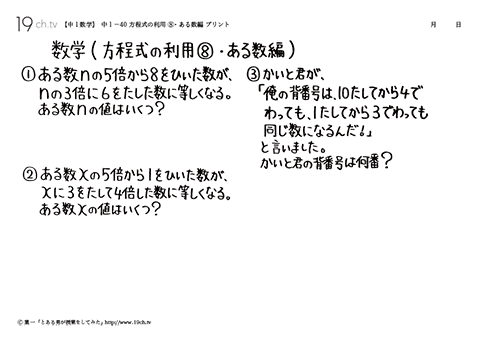 19ch.tv 【中1数学】 中1-40 方程式の利用⑧・ある数編 プリント 月 日
数学(方程式の利用⑧・ある数編)
①ある数nの5倍から8をひいた数が、
nの3倍に6をたした数に等しくなる。
ある数nの値はいくつ?
②ある数xの5倍から1をひいた数が、
xに3をたして4倍した数に等しくなる。
ある数xの値はいくつ?
③かいと君が、
「俺の背番号は、10たしてから4で
わっても、1たしてから3でわっても
同じ数になるんだ!」
と言いました。
かいと君の背番号は何番?
Ⓒ葉一「とある男が授業をしてみた」http://www.19ch.tv